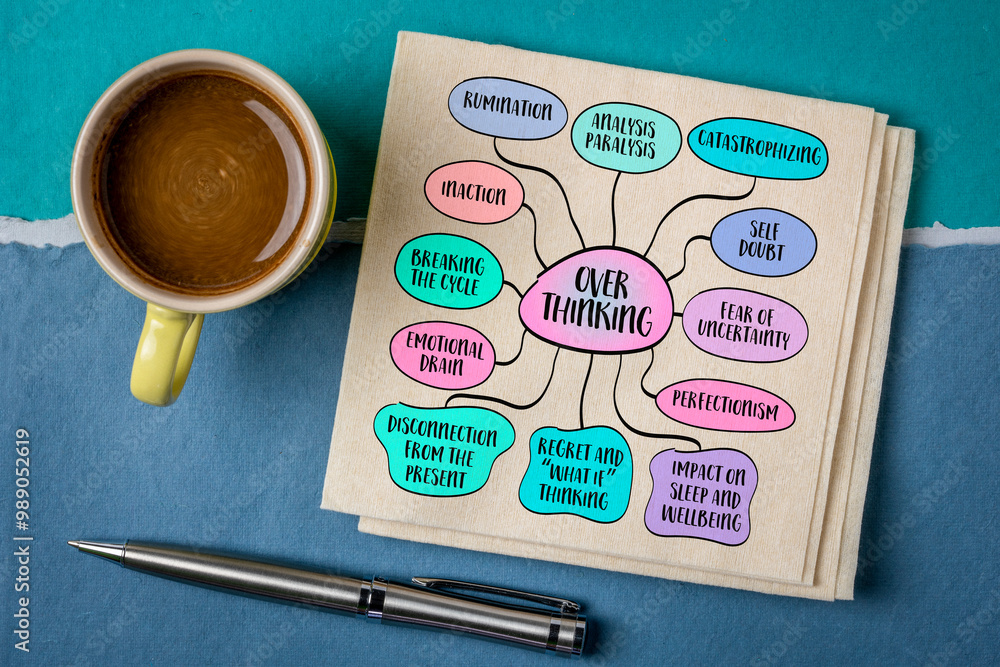 RUMINATION
ANALYSIS
PARALYSIS
CATASTROPHIZING
INACTION
SELF
DOUBT
BREAKING
THE CYCLE
OVER
THINKING
FEAR OF
UNCERTAINTY
EMOTIONAL
DRAIN
PERFECTIONISM
DISCONNECTION
FROM THE
PRESENT
REGRET AND
"WHAT IF"
THINKING
IMPACT ON
SLEEP AND
WELLBEING
Adobe Stock | #989052619